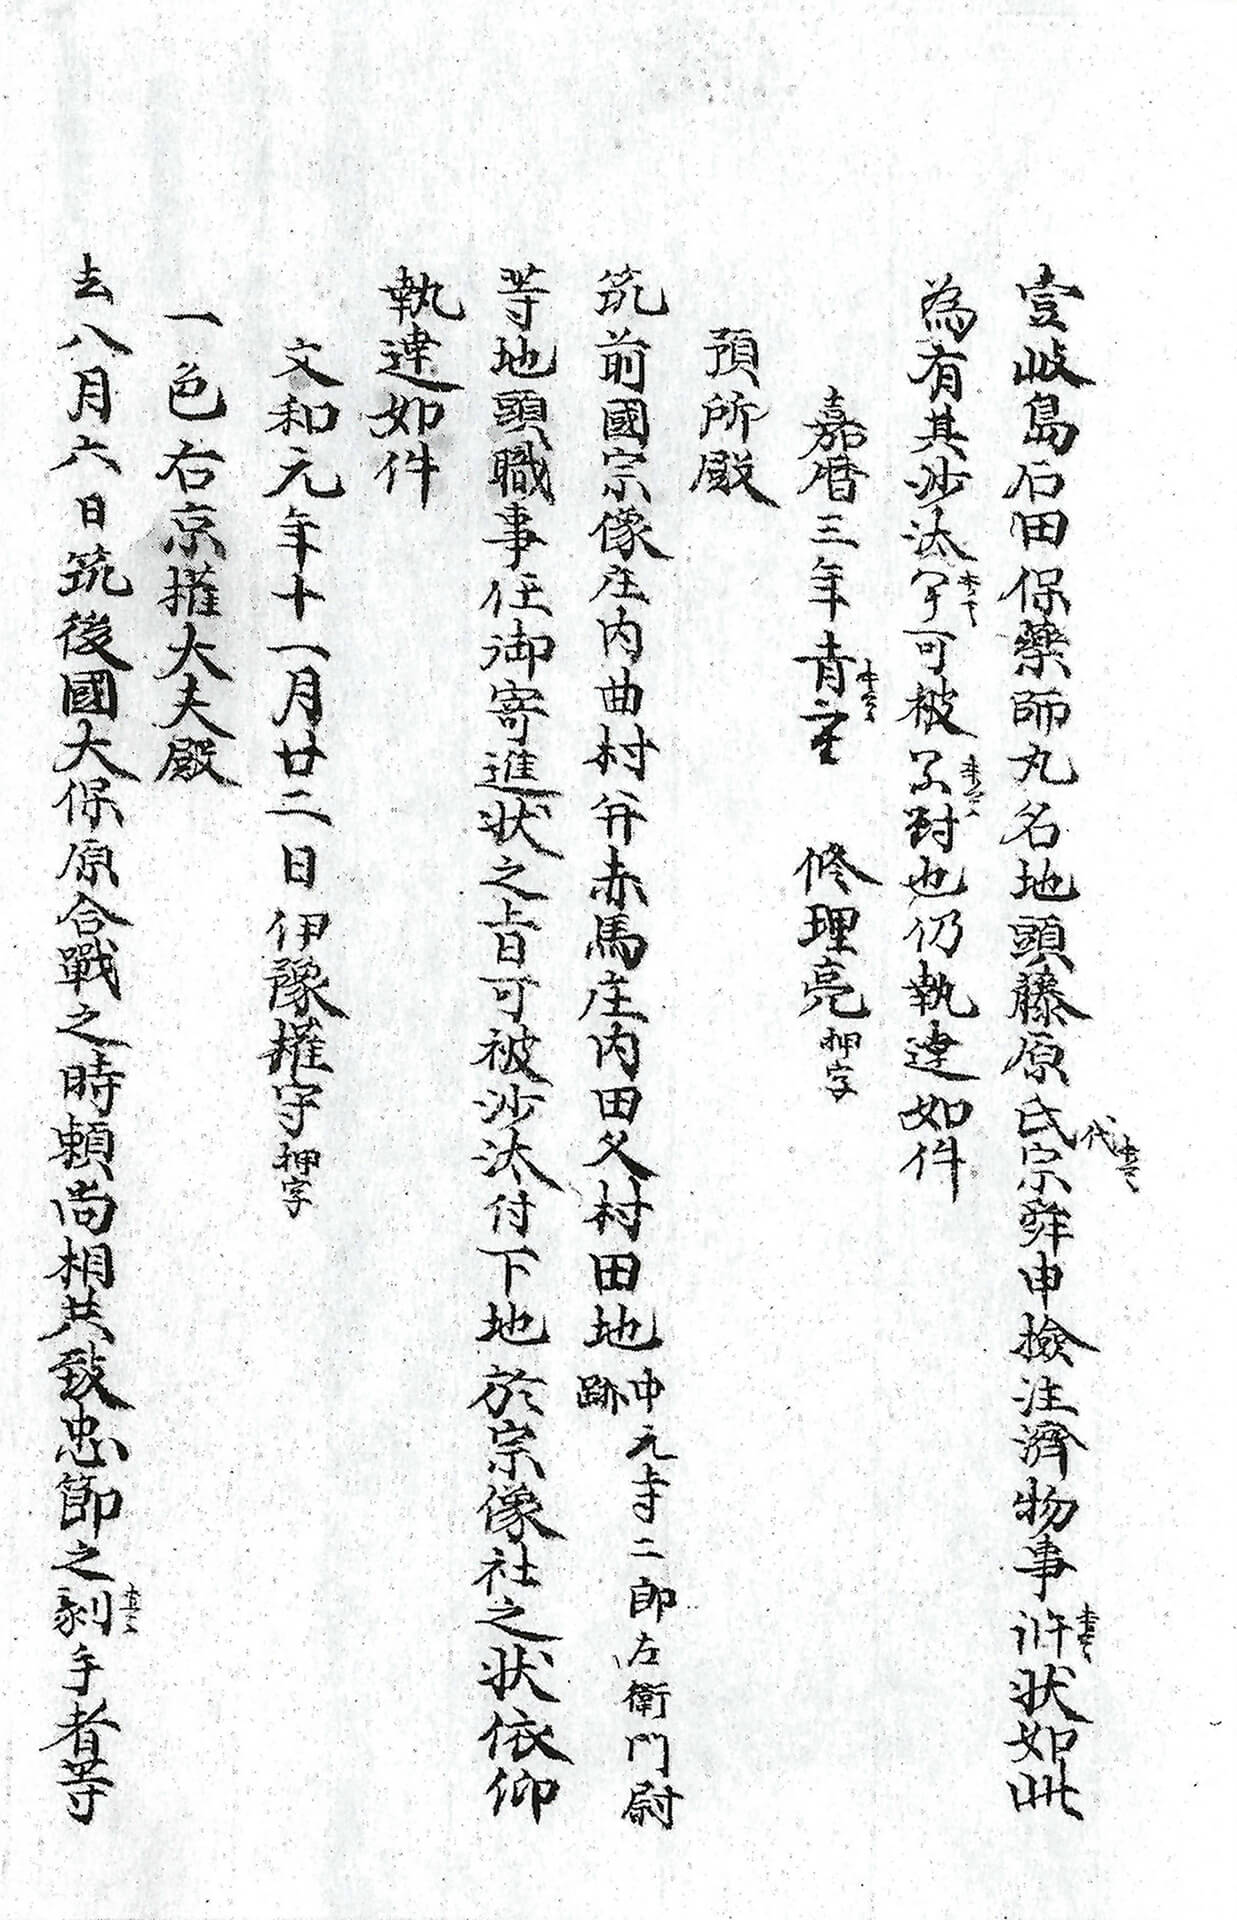 壹岐島石田保藥師丸名地頭藤原氏代宗舜申撿注濟物事訴状如此
為有其沙汰可被對也仍執達如件
嘉暦三年青 修理亮押字
預所殿
筑前國宗像庄内曲村并赤馬庄内田久村田地中元寺二郎左衛門尉跡
等地頭職事任御寄進状之旨可被沙汰付下地於宗像社之状依仰
執達如件
文和元年十一月廿二日伊豫權守押字
一色右京權大夫殿
去八月六日筑後國大保原合戰之時頼尚相共致忠節之剋手者等